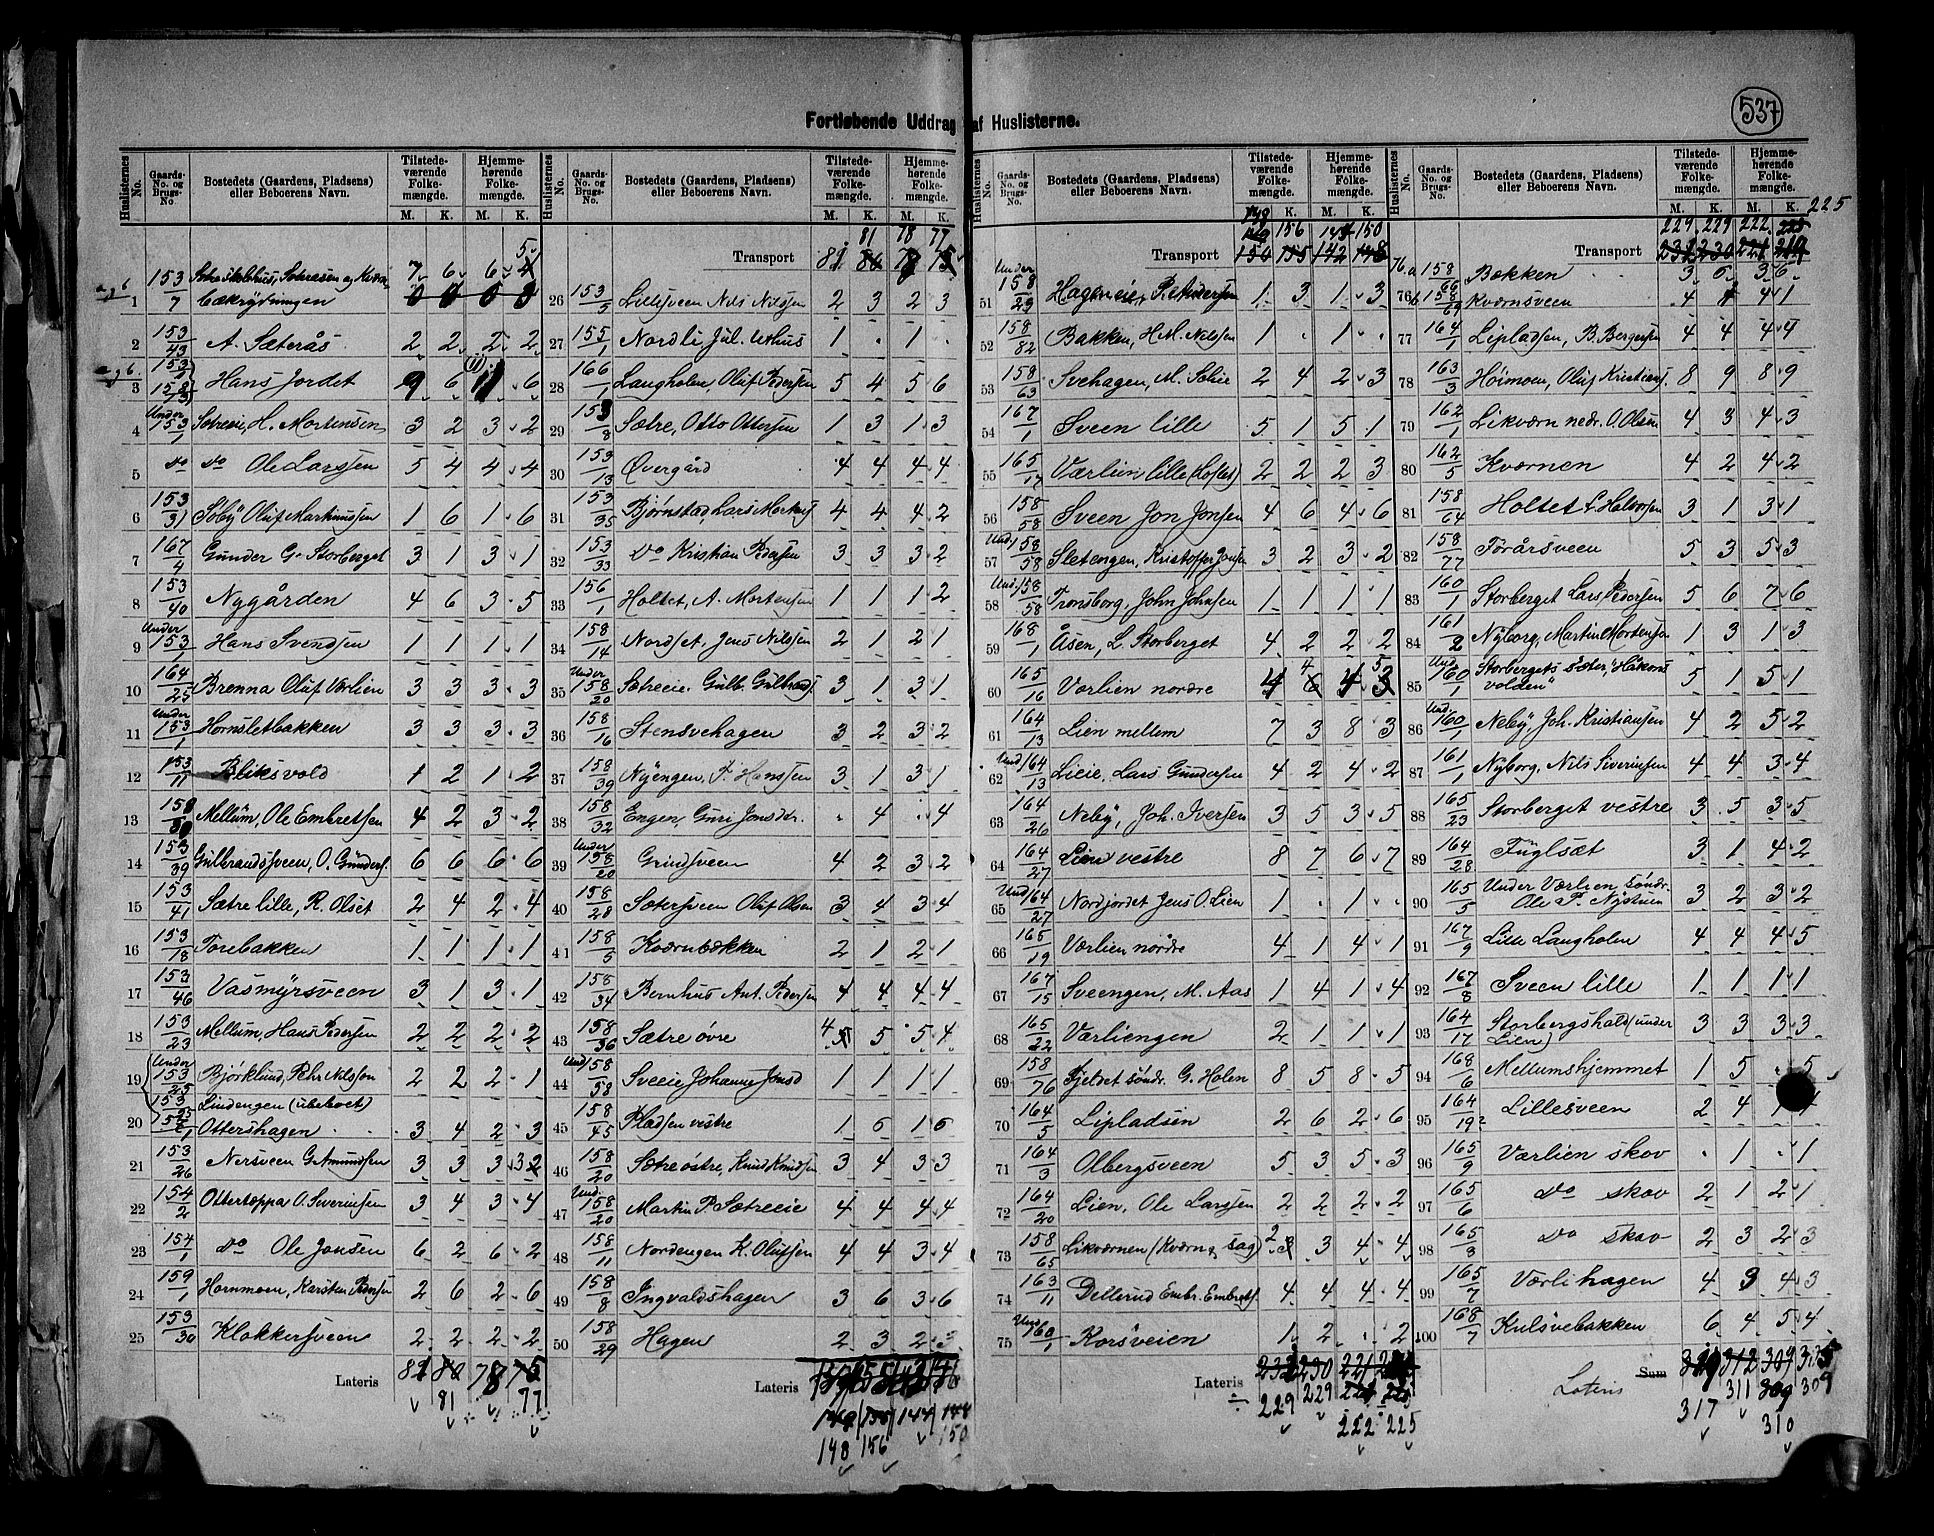 537
Fortløbende Uddrag af Huslisterne.
Huslisternes No. | Gaards-No. og Brugs-No. | Bostedets (Gaardens, Pladsens) eller Beboerens Navn. | Tilstedeværende Folkemængde. M. K. | Hjemmehørende Folkemængde. M. K.
1 153/7 Bækrydningen
2 153/43 A. Sæterås 2 2 2 2
3 Hans Jordet 9 6 11 6
4 Under 153/1 Sætreeie, H. Mortensen 3 2 3 2
5 do do Ole Larssen 5 4 4 4
6 153/31 Søby Oluf Markussen 1 6 1 6
7 167/4 Gunder G. Storberget 3 1 3 1
8 153/40 Nygården 4 6 3 5
9 Under 153/1 Hans Svendsen 1 1 1 1
10 164/25 Brenna Oluf Værlien 3 3 3 3
11 Under 153/1 Hornsletbakken 3 3 3 3
12 153/11 Bliksvold 1 2 1 2
13 Mellum, Ole Embretsen 4 2 3 2
14 153/39 Gulbrandssveen, O. Gunders. 6 6 6 6
15 153/41 Sætre lille, R. Olset 2 4 2 4
16 153/18 Torebakken 1 1 1 1
17 153/46 Vasmyrsveen 3 1 3 1
18 153/23 Mellum, Hans Pedersen 2 2 2 2
19 Under 153/25 Bjørklund, Pehr Nilsson 2 2 2 1
Lindengen (ubeboet)
20 Ottershagen 3 4 2 3
21 153/26 Nersveen G. Amundsen 3 3 3 2
22 154/2 Ottertoppa O. Severinsen 3 4 3 4
23 154/1 do Ole Jonsen 6 2 6 2
24 159/1 Hornmoen, Karsten Pedersen 2 6 2 6
25 153/30 Klokkersveen 2 2 2 2
Lateris 81 78 77
Transport 81 78 77
26 153/5 Lillesveen Nils Nilssen 2 3 2 3
27 155/1 Nordli, Jul. Uthus 1 . 1 .
28 166/1 Langholen, Oluf Pedersen 5 4 5 6
29 153/8 Sætre, Otto Ottersen 1 3 1 3
30 153/13 Øvergård 4 4 4 4
31 153/35 Bjørnstad, Lars Markus. 4 4 4 2
32 153/33 do Kristian Pedersen 3 3 3 2
33 156/1 Holtet, A. Mortensen 1 1 1 2
34 158/14 Nordset, Jens Nilssen 2 1 2 1
35 Under 158/20 Sætreeie. Gulb. Gulbrands. 3 1 3 1
36 158/16 Stensvehagen 3 2 3 2
37 158/39 Nyengen, P. Hanssen 3 1 3 1
38 158/32 Engen, Guri Jonsdr. . 4 . 4
39 Under 158/20 Grindsveen 4 2 3 2
40 158/28 Sætersveen Oluf Olsen 3 4 3 4
41 158/5 Kværnbækken 2 1 2 1
42 158/34 Bernhus Ant. Pedersen 4 4 4 4
43 158/36 Sætre øvre 4 5 5 4
44 Und. 158/58 Sveeie Johanne Jonsd 1 1 1 1
45 158/45 Pladsen vestre 1 6 1 6
46 158/20 Sætre østre, Knud Knudsen 3 4 3 3
47 Und. 158/20 Martin P. Sætreeie 4 4 4 4
48 158/11 Nordengen K. Olufsen 4 4 3 4
49 158/8 Ingvaldshagen 3 6 3 6
50 158/29 Hagen 2 3 2 3
Lateris 148 156 144 150
Transport 156 150
51 Under 158/29 Hageneier, P. Andersen 1 3 1 3
52 158/82 Bakken, H. M. Nilssen 1 . 1 .
53 158/63 Svehagen, M. Schie 2 4 2 3
54 167/1 Sveen lille 5 1 5 1
55 165/17 Værlien lille (Koftes) 2 2 2 3
56 158/58 Sveen Jon Jonsen 4 6 4 6
57 Und. 158/58 Sletengen, Kristoffer Jonsen 3 2 3 2
58 Und. 158/58 Tronsborg, John Johnsen 1 1 1 1
59 168/1 Åsen, L. Storberget 4 2 2 2
60 165/16 Værlien nordre
61 164/13 Lien mellem 7 3 8 3
62 Und. 164/13 Lieie, Lars Gundersen 4 2 4 2
63 164/26 Neby, Joh. Iversen 3 5 3 5
64 164/27 Lien vestre 8 7 6 7
65 Und. 164/27 Nordjordet Jens O. Lien 1 . 1 .
66 165/19 Værlien nordre 4 1 4 1
67 167/15 Sveengen, M. Aas 1 4 1 4
68 165/22 Værliengen 2 1 1 1
69 158/76 Fjeldet søndr. G. Holen 8 5 8 5
70 164/5 Lipladsen 2 6 2 6
71 164/3 Olbergsveen 5 3 5 3
72 164/20 Lien, Ole Larssen 2 2 2 2
73 158/65 Likværnen (Kværn & sag) 2 3 4 4
74 163/11 Dellerud Embr. Embrets. 4 4 4 4
75 Und. 160/1 Korsveien 1 2 . 2
Lateris 229 229 222 225
Transport 229 229 222 225
76a 158/66 Bakken 3 6 3 6
76b 158/69 Kværnsveen 4 1 4 1
77 164/1 Lipladsen, B. Bergersen 4 4 4 4
78 163/3 Høimoen, Oluf Kristians. 8 9 8 9
79 162/1 Likværn nedr. O. Olsen 4 3 4 3
80 162/5 Kværnen 4 2 4 2
81 158/64 Holtet L. Halvorsen 3 1 3 1
82 158/77 Førårsveen 5 3 5 3
83 160/1 Storberget Lars Pedersen 5 6 7 6
84 161/2 Nyborg, Martin Mortensen 1 3 1 3
85 Und. 160/1 Storbergets sæter, "Håkonsvolden" 5 1 5 1
86 Und. 160/1 Neby, Joh. Kristiansen 4 2 5 2
87 161/1 Nyborg, Nils Siverinsen 4 4 3 4
88 165/23 Storberget vestre 3 5 3 5
89 164/28 Fuglsæt 3 1 4 2
90 165/5 Under Værlien, søndr. Ole P. Nystuen 3 2 3 2
91 167/9 Lille Langholen 4 4 4 5
92 167/8 Sveen lille 1 1 1 1
93 164/17 Storbergshald (under Lien) 3 3 3 3
94 168/6 Mellumshjemmet 1 5 . 5
95 164/19 Lillesveen 2 4 1 4
96 165/9 Værlien skov . 1 . 1
97 165/6 do skov 2 1 2 1
98 165/3 do skov 2 3 2 3
99 165/7 Værlihagen 4 3 4 3
100 168/7 Kulsvebakken 6 4 5 4
Sum
Lateris 317 311 310 309